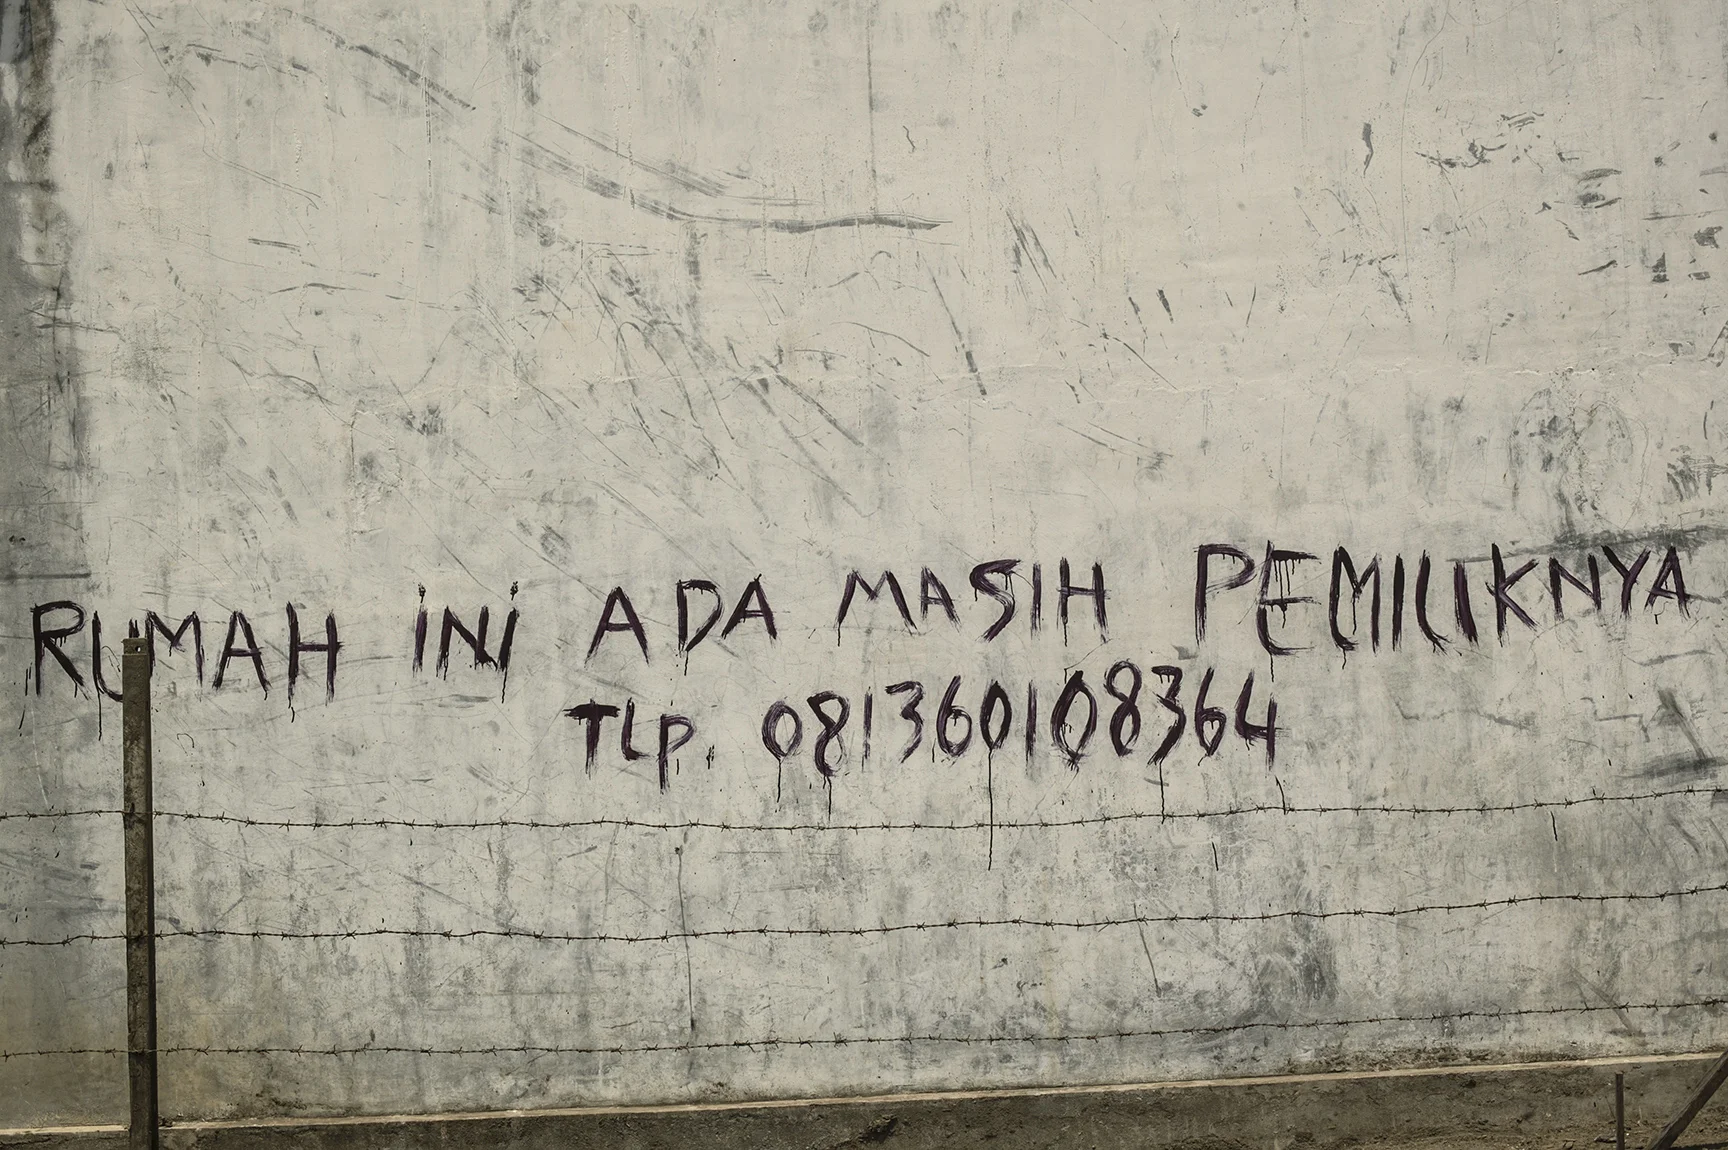 RUMAH INI ADA MASIH PEMILIKNYA
TLP. 081360108364